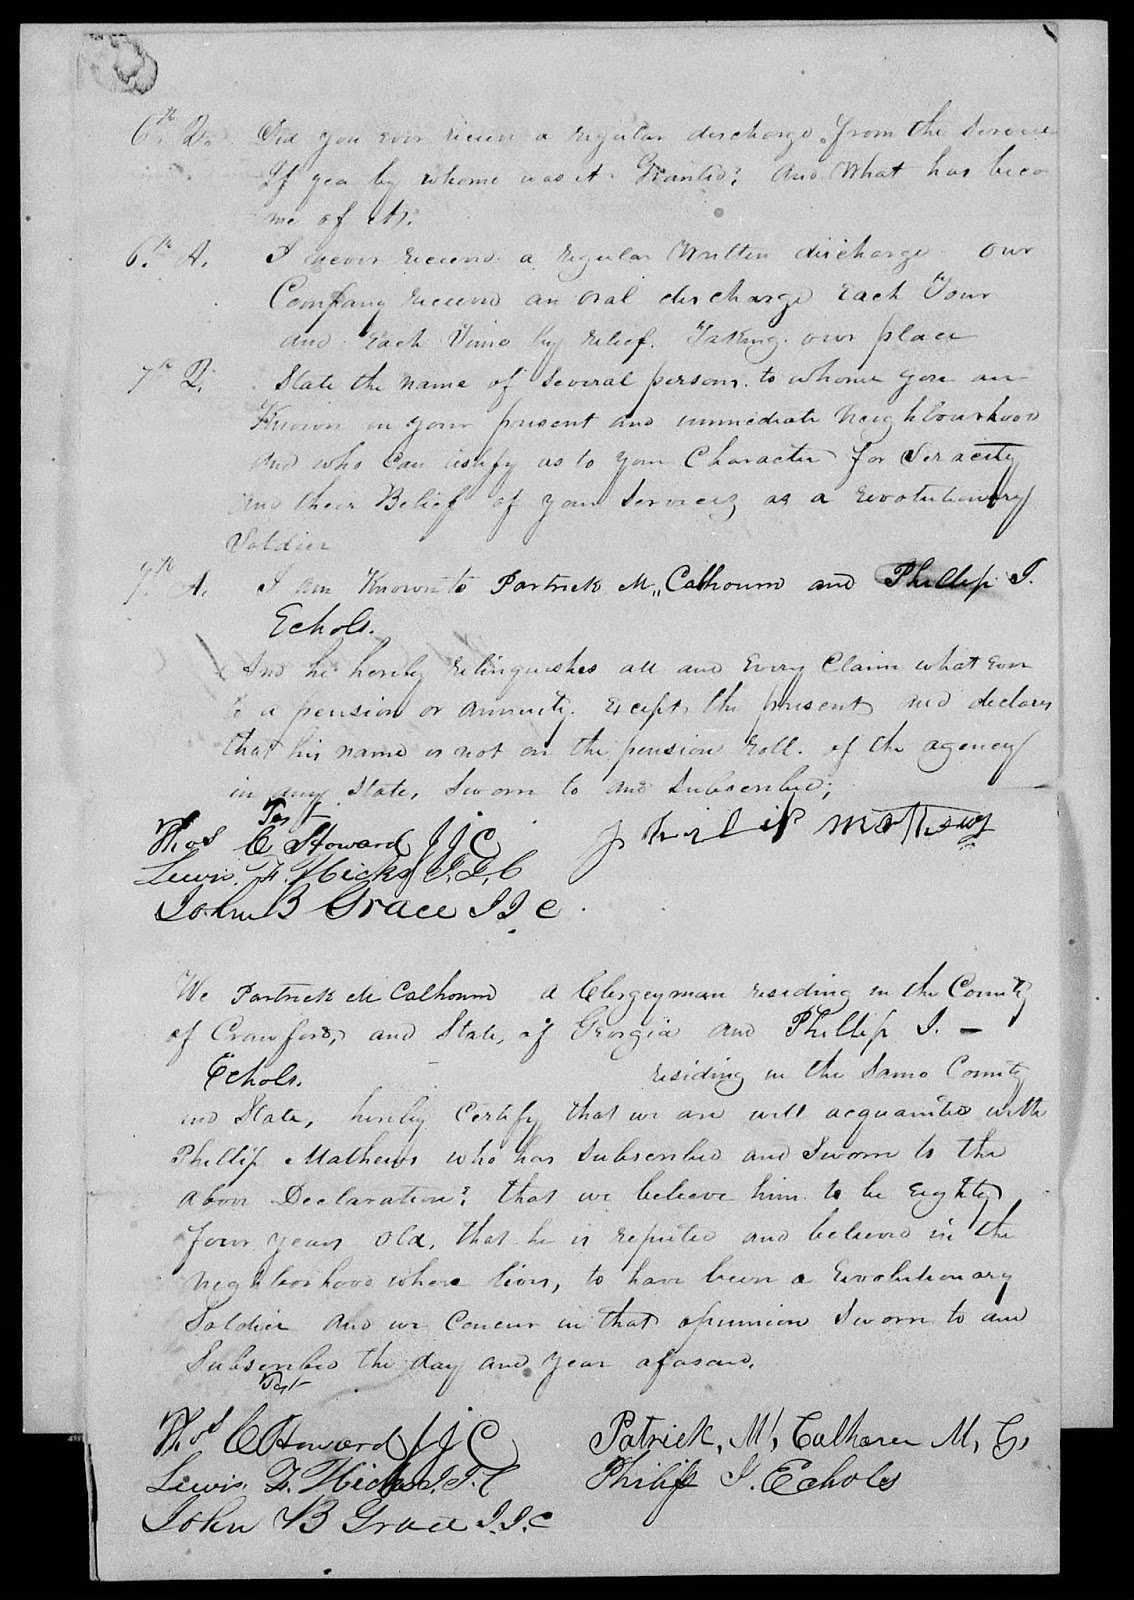 6th Q. Did you ever receive a regular discharge from the Service
If yea by whome was it Granted? And What has beco
me of it?
6th A. I never received a regular Written discharge - our
Company received an oral discharge Each Tour
and Each Time by relief. Taking our place
7th Q. State the name of Several persons to whome you are
Known in your present and immediate Neighbourhood
and who can testify as to your Character for Veracity
and their Belief of your Services as a revolutionary
Soldier
7th A. I am Known to Partrick M,, Calhoun and Phillip I.
Echols.
And he hereby relinquishes all and Every Claim what ever
to a pension or annuity. Except the present and declares
that his name is not on the pension Roll. of the agency
in any State, Sworn to and Subscribed;
Test
Thos C Howard J J C
Philip Mathews
Lewis. F. Hicks J. I. C
John B Grace J. I. C.
We Partrick Mc Calhoun a Clergeyman residing in the County
of Crawford, and State, of Georgia and Phillip I. -
Echols. residing in the Same County
and State, hereby Certify that we are well acquainted with
Phillip Mathews who has Subscribed and Sworn to the
above Declaration; that we believe him to be Eighty
four years old, that he is reputed and believed in the
neighborhood where lives, to have been a Revolutionary
Soldier and we Concur in that opinnion Sworn to and
Subscribed the day and year afosaid.
Test
Thos C Howard J J C
Patrick, Mc, Calhoun M. G.
Lewis. F. Hicks J. I. C
Philip I. Echols
John B Grace J. I. C